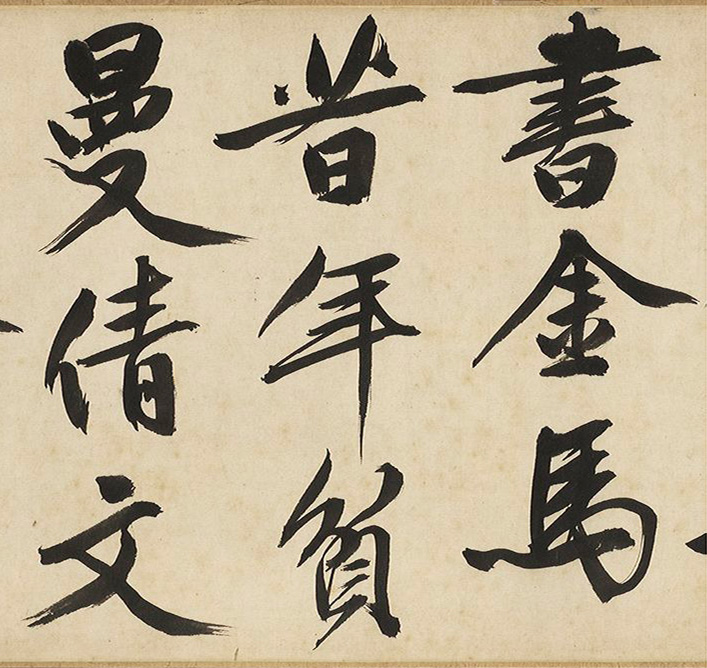 書金馬
昔年貧
曼倩文